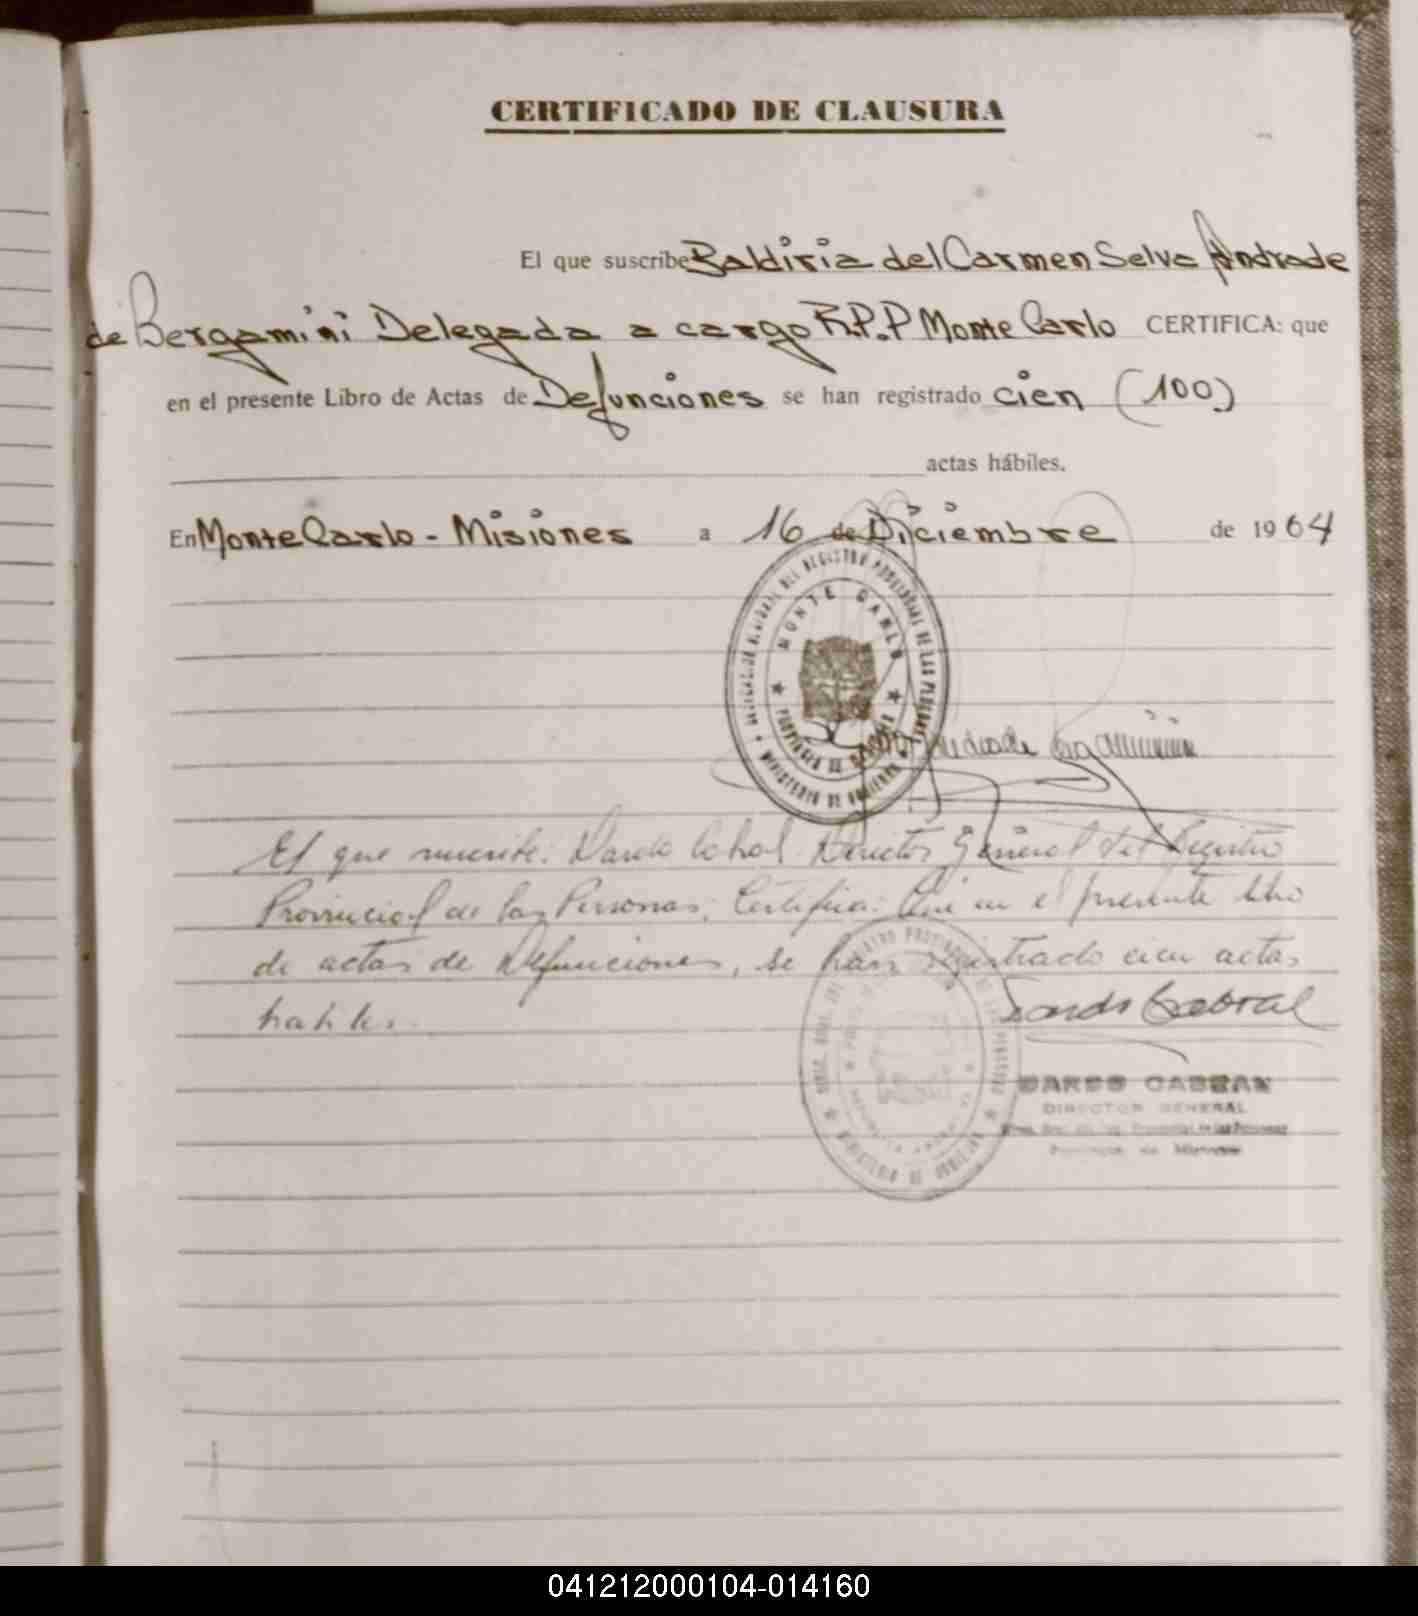 CERTIFICADO DE CLAUSURA
El que suscribe Baldiria del Carmen Selva Andrade
de Bergamini Delegada a cargo R.P.P Monte Carlo CERTIFICA: que
en el presente Libro de Actas de Defunciones se han registrado cien (100)
actas hábiles.
En Monte Carlo - Misiones a 16 de Diciembre de 1964
MONTE CARLO
PROVINCIA DE
MINISTERIO DE GOBIERNO
Andrade Bergamini
El que suscribe: Dardo Cabral Director General del Registro
Provincial de las Personas; Certifica: Que en el presente libro
de actas de Defunciones, se han registrado cien actas
habiles.
Dardo Cabral
DIRECTOR GENERAL
Provincia de Misiones
041212000104-014160